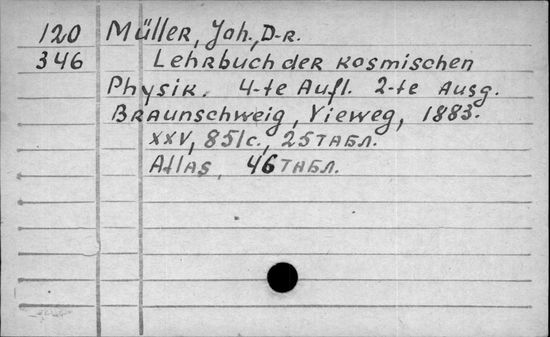 120 Müller, Joh., D-r.
346 Lehrbuch der kosmischen
Physik. 4-te Aufl. 2-te Ausg.
Braunschweig, Vieweg, 1883.
XXV, 851с., 25 табл.
Atlas, 46 табл.